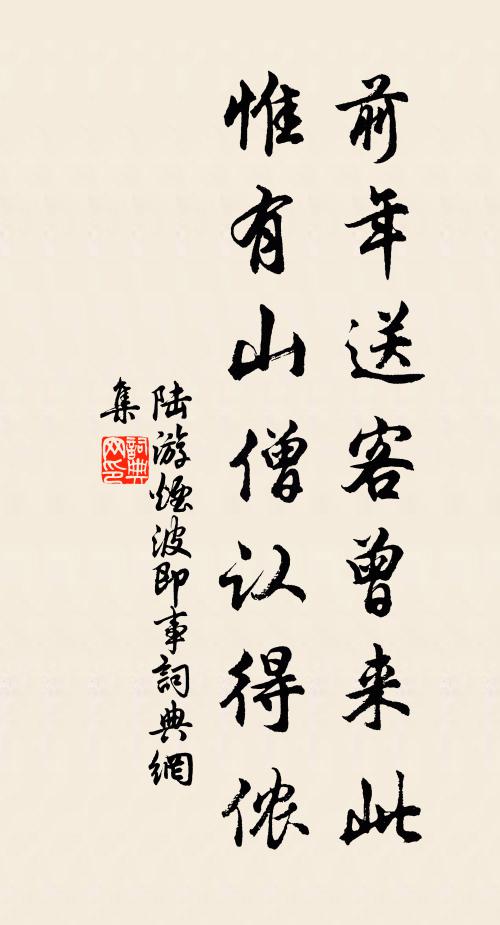 前年送客曾来此
惟有山僧认得侬
陆游烟波即事詞典網
集
詞典網印